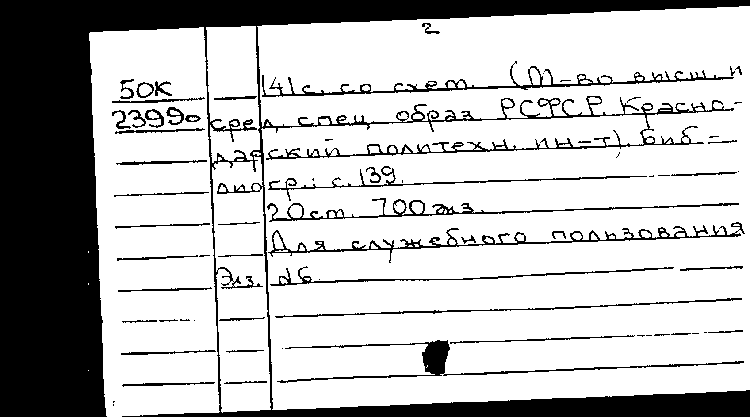 2
50К 141с. со схем. (М-во высш. и
23990 сред. спец. образ РСФСР. Красно-
дарский политехн. ин-т). Биб-
лиогр.: с. 139.
20см. 700 экз.
Для служебного пользования
Экз. №6